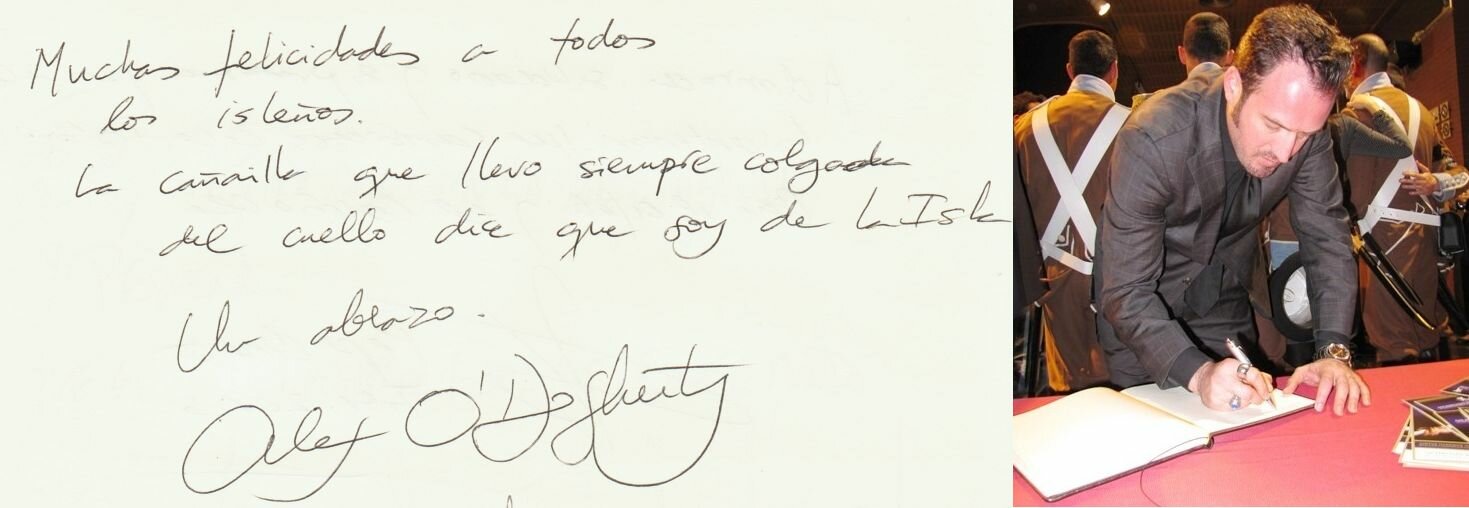 Muchas felicidades a todos
los isleños.
La cañailla que llevo siempre colgada
del cuello dice que soy de La Isla
Un abrazo.
Alex O'Dogherty